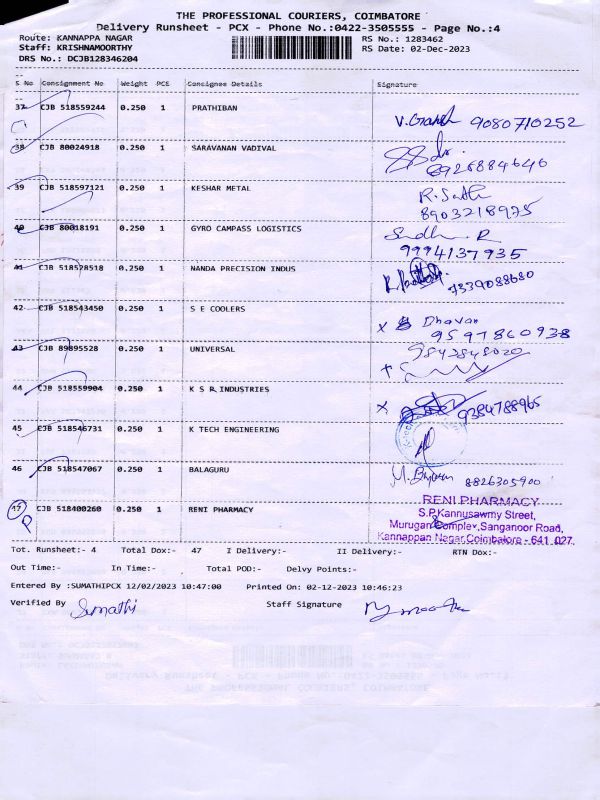 THE PROFESSIONAL COURIERS, COIMBATORE
Delivery Runsheet - PCX - Phone No.:0422-3505555 - Page No.:4
Route: KANNAPPA NAGAR RS No.: 1283462
Staff: KRISHNAMOORTHY RS Date: 02-Dec-2023
DRS No.: DCJB128346204
S No Consignment No Weight PCE Consignee Details Signature
37 CJB 518559244 0.250 1 PRATHIBAN
9080710252
38 CJB 80024918 0.250 1 SARAVANAN VADIVAL
8926884646
39 CJB 518597121 0.250 1 KESHAR METAL
8903218975
40 CJB 80018191 0.250 1 GYRO CAMPASS LOGISTICS
9994137935
41 CJB 518528518 0.250 1 NANDA PRECISION INDUS
7339088680
42 CJB 518543450 0.250 1 S E COOLERS
x Dhavan
9597860938
43 CJB 89895528 0.250 1 UNIVERSAL
9843848020
44 CJB 518559904 0.250 1 K S R INDUSTRIES
x 9384788965
45 CJB 518546731 0.250 1 K TECH ENGINEERING
46 CJB 518547067 0.250 1 BALAGURU
8826305900
47 CJB 518400260 0.250 1 RENI PHARMACY
RENI PHARMACY
S.P.Kannusawmy Street,
Murugan Complex,Sanganoor Road,
Kannappan Nagar,Coimbatore - 641 027.
Tot. Runsheet:- 4 Total Dox:- 47 I Delivery:- II Delivery:- RTN Dox:-
Out Time:- In Time:- Total POD:- Delvy Points:-
Entered By :SUMATHIPCX 12/02/2023 10:47:00 Printed On: 02-12-2023 10:46:23
Verified By Sumathi Staff Signature